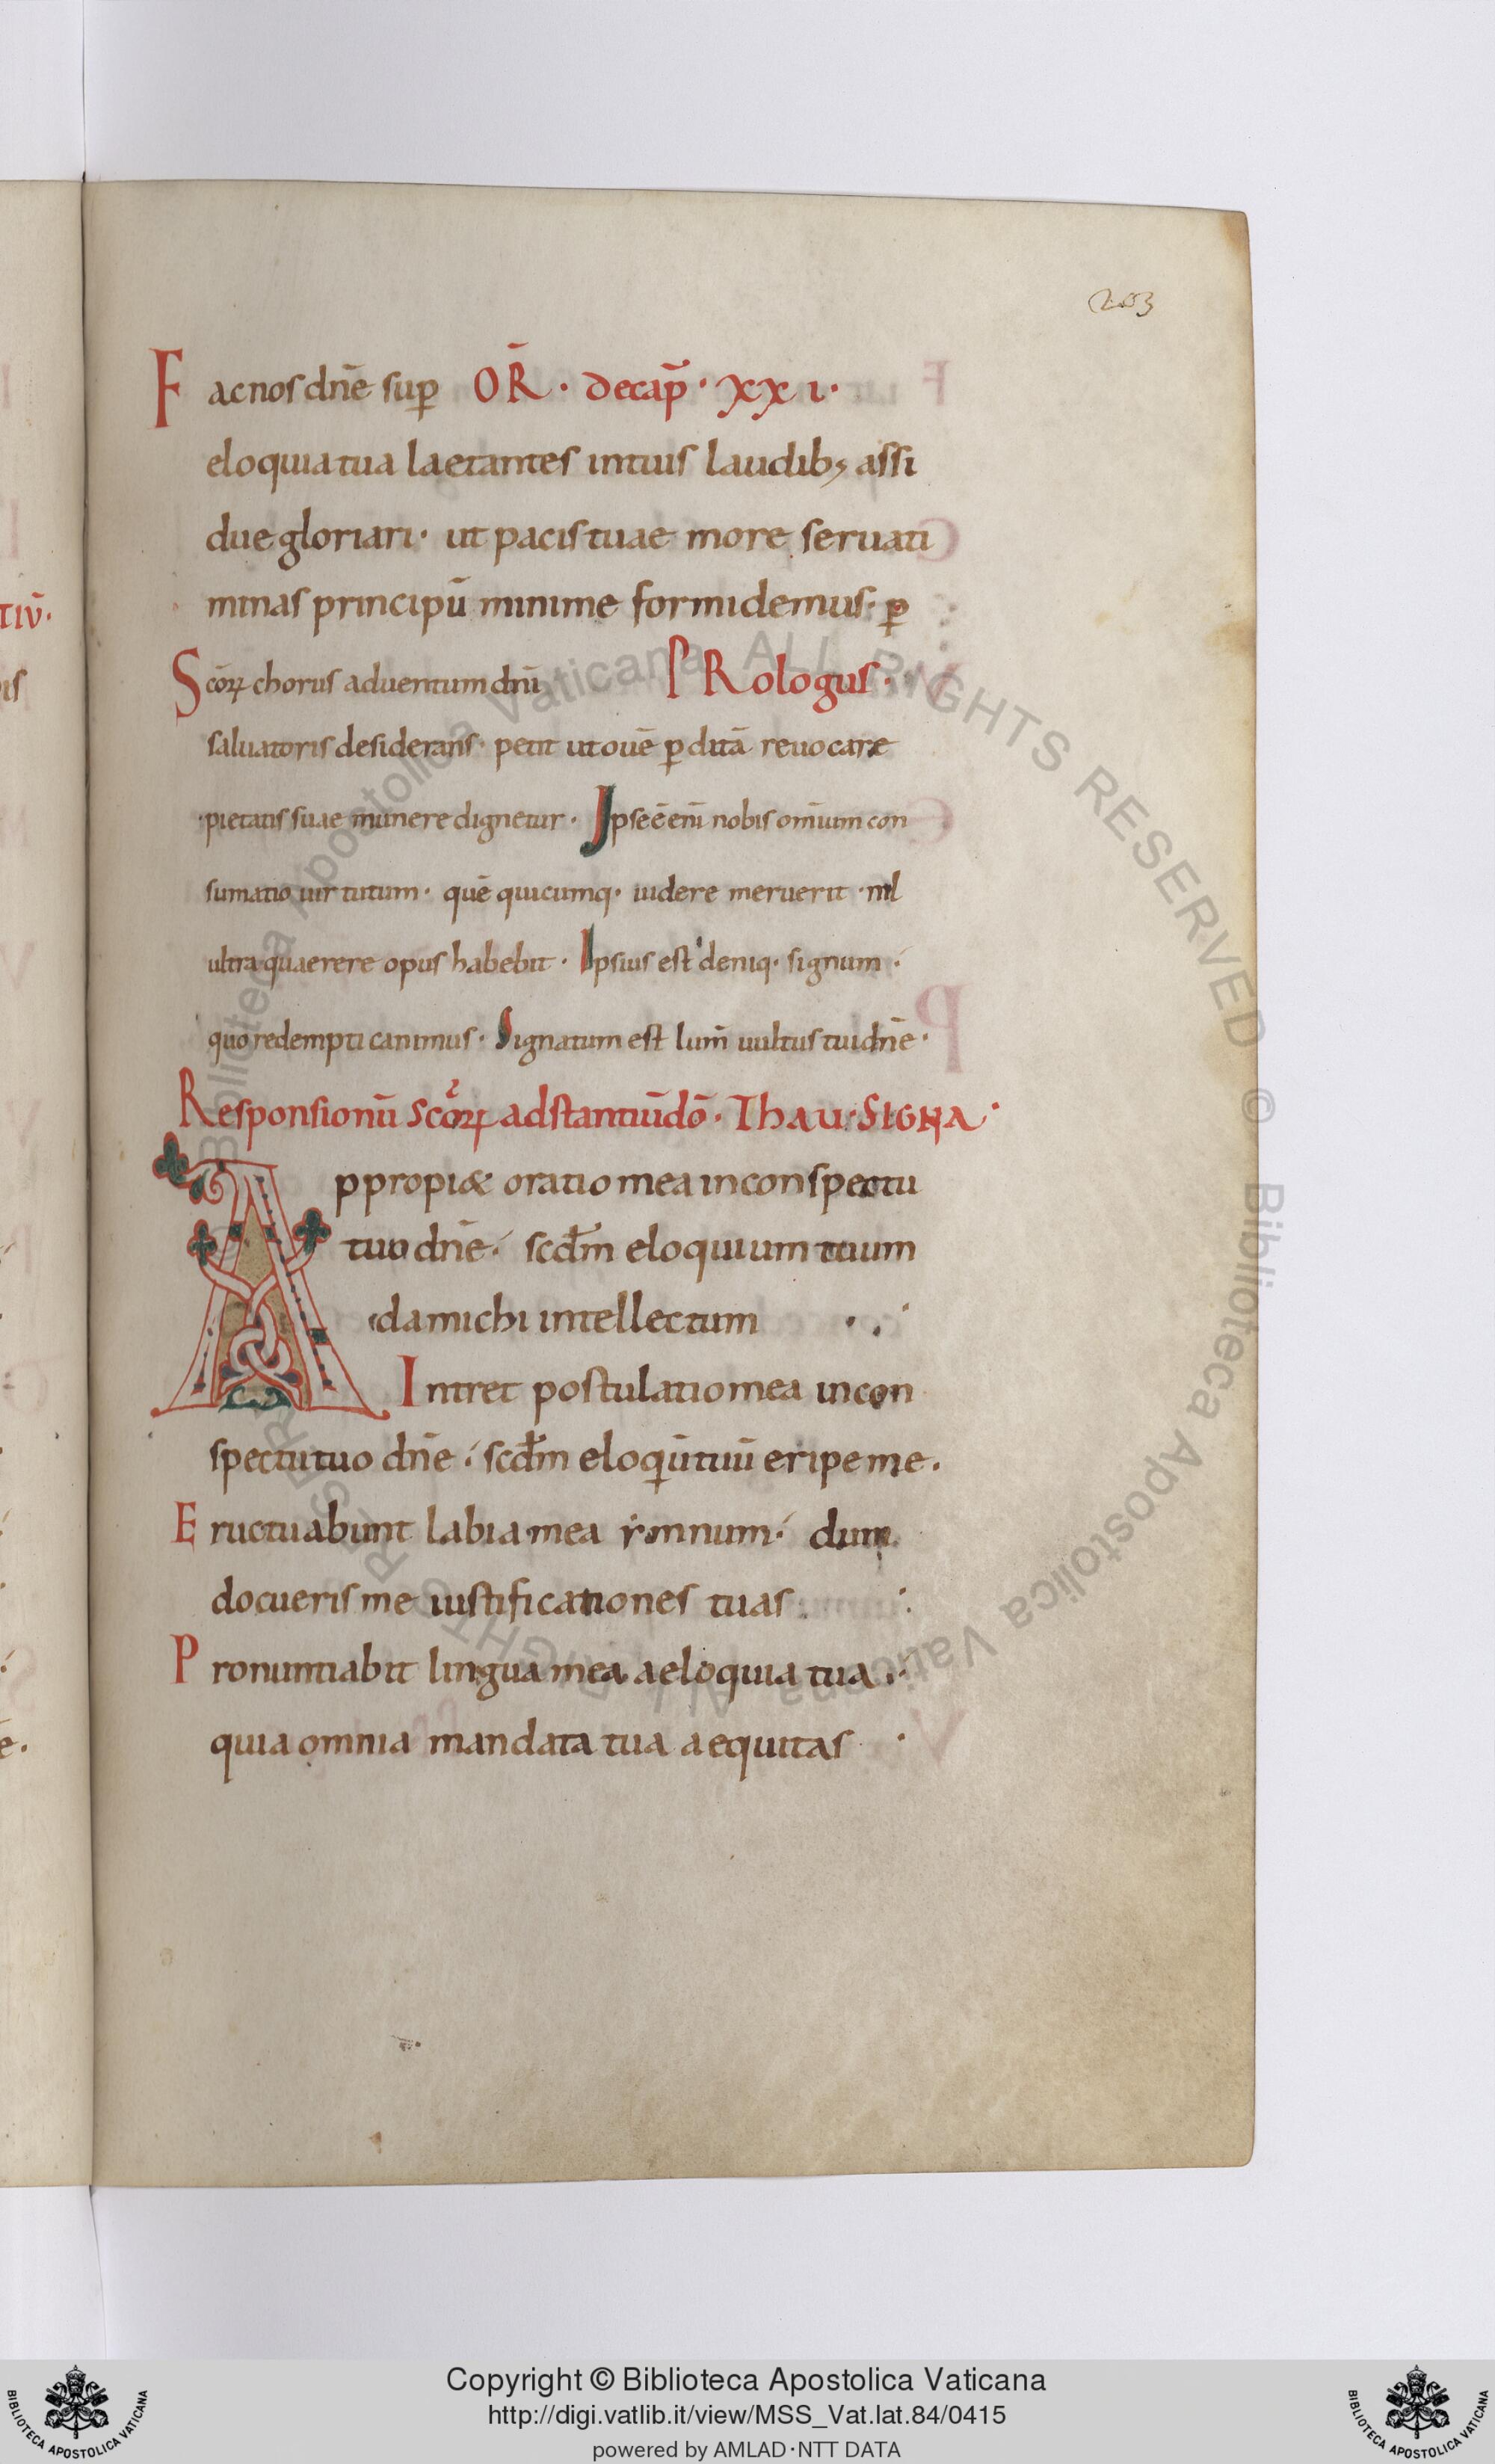 203
Fac nos dn̄e sup̱ OR̄ · De cap̄ · XXI ·
eloquia tua laetantes in tuis laudib; assi
due gloriari · ut pacis tuae more seruati
minas principū minime formidemus · p̱
Scōꝝ chorus aduentum dn̄i PRologus ·
saluatoris desiderans · petit ut ouē p̱ditā reuocare
pietatis suae munere dignetur · Ipse ē eni̅ nobis om̄ium con
sumatio uirtutum · quē quicumq· uidere meruerit · nil
ultra quaerere opus habebit · Ipsius est deniq· signum ·
quo redempti canimus · Signatum est lum̄ uultus tui dn̄e ·
Responsionū scōꝝ adstantiū dō · Thau · SIGNA ·
Appropi& oratio mea in conspectu
tuo dn̄e · scd̄m eloquium tuum
da michi intellectum · . ·
Intret postulatio mea in con
spectu tuo dn̄e · scd̄m eloqūi tuū eripe me .
Eructuabunt labia mea ẏmnum · dum
docueris me iustificationes tuas
Pronuntiabit lingua mea aeloquia tua ·
quia omnia mandata tua aequitas ·
TIŪ ·
is
e .
Copyright © Biblioteca Apostolica Vaticana
http://digi.vatlib.it/view/MSS_Vat.lat.84/0415
powered by AMLAD·NTT DATA
BIBLIOTECA APOSTOLICA VATICANA
BIBLIOTECA APOSTOLICA VATICANA
© Biblioteca Apostolica Vaticana ALL RIGHTS RESERVED © Biblioteca Apostolica Vaticana ALL RIGHTS RESERVED